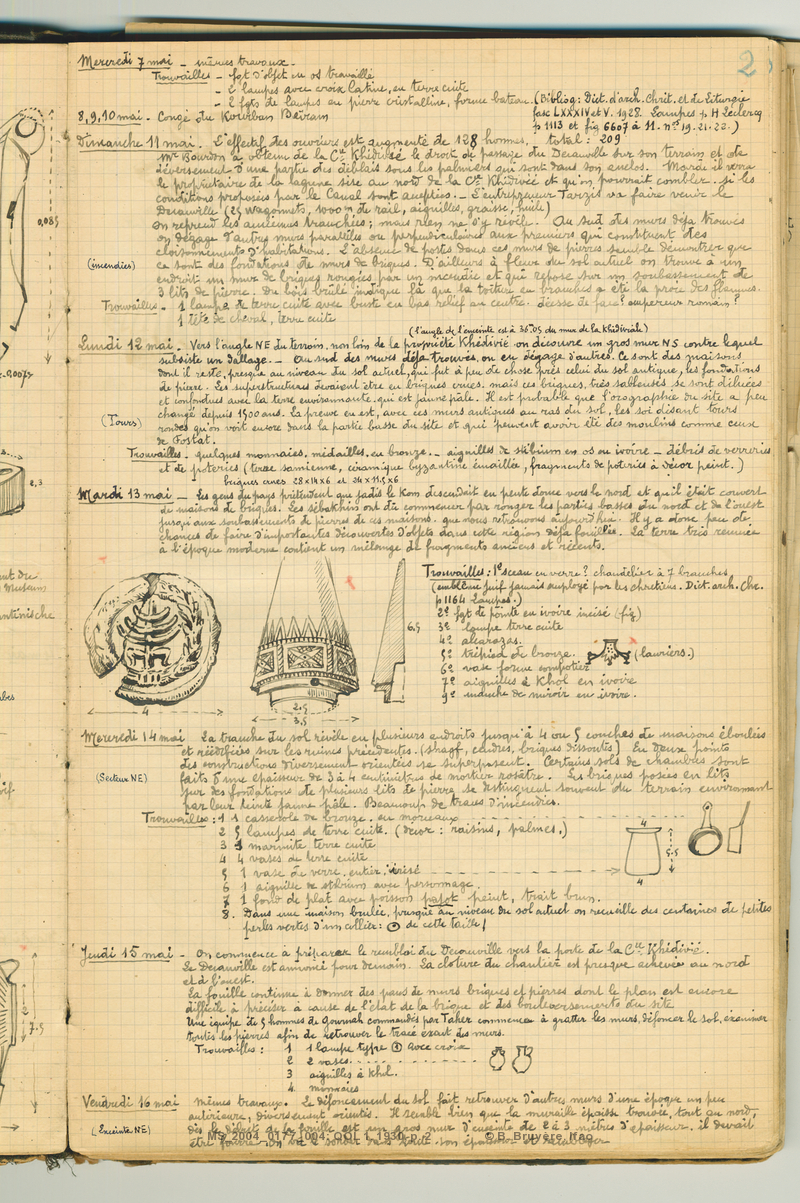 2
Mercredi 7 mai - mêmes travaux.
Trouvailles - fgt d'objet en os travaillé
- 2 lampes avec croix latine, en terre cuite
- 2 fgts de lampes en pierre cristalline, forme bateau. (Bibliog: Dict. d'arch. Chrét. et de Liturgie
8, 9, 10 mai - Congé du Kourban Beïram
fasc LXXXIV et V. 1928. Lampes p. H Leclercq
p 1113 et fig 6607 à 11. nos 19.21.22.)
Dimanche 11 mai. L'effectif des ouvriers est augmenté de 128 hommes. total: 209
Mr Bourdon a obtenu de la Cie Khédivié le droit de passage du Decauville sur son terrain et de
déversement d'une partie des déblais sous les palmiers qui sont dans son enclos. Mardi il verra
le propriétaire de la lagune sise au nord de la Cie Khédivié et qu'on pourrait combler si les
conditions proposées par le Canal sont acceptées. L'entrepreneur Tarzis va faire venir le
Decauville (25 wagonnets, 1000 m de rail, aiguilles, graisse, huile)
On reprend les anciennes tranchées; mais rien ne s'y révèle. Au sud des murs déjà trouvés
on dégage d'autres murs parallèles ou perpendiculaires aux premiers qui constituent des
cloisonnements d'habitations. L'absence de portes dans ces murs de pierres semble démontrer que
ce sont des fondations de murs de briques. D'ailleurs à fleur du sol actuel on trouve à un
(incendies)
endroit un mur de briques rongées par un incendie et qui repose sur un soubassement de
3 lits de pierre. Du bois brûlé indique là que la toiture en branches a été la proie des flammes.
Trouvailles - 1 lampe de terre cuite avec buste en bas relief au centre. déesse de face? empereur romain?
1 tête de cheval, terre cuite
(l'angle de l'enceinte est à 36.05 du mur de la Khédiviale)
Lundi 12 mai. Vers l'angle NE du terrain, non loin de la propriété Khédivié on découvre un gros mur NS contre lequel
subsiste un dallage. - Au sud des murs déjà trouvés, on en dégage d'autres. Ce sont des maisons
dont il reste, presque au niveau du sol actuel, qui fut à peu de chose près celui du sol antique, les fondations
de pierre. Les superstructures devaient être en briques crues. mais ces briques, très sableuses, se sont diluées
et confondues avec la terre environnante qui est jaune pâle. Il est probable que l'orographie du site a peu
changé depuis 1500 ans. La preuve en est, avec ces murs antiques au ras du sol, les soi disant tours
(Tours)
rondes qu'on voit encore dans la partie basse du site et qui peuvent avoir été des moulins comme ceux
de Fostat.
Trouvailles - quelques monnaies, médailles, en bronze. - aiguilles de stibium en os ou ivoire - débris de verreries
et de poteries (terre samienne, céramique byzantine émaillée, fragments de poteries à décor peint.)
briques crues 28x14x6 et 24x11.5x6
Mardi 13 mai - Les gens du pays prétendent que jadis le Kom descendait en pente douce vers le nord et qu'il était couvert
de maisons de briques. Les sébakhin ont dû commencer par ronger les parties basses du nord et de l'ouest
jusqu'aux soubassements de pierres de ces maisons que nous retrouvons aujourd'hui. Il y a donc peu de
chances de faire d'importantes découvertes d'objets dans cette région déjà fouillée. La terre très remuée
à l'époque moderne contient un mélange de fragments anciens et récents.
Trouvailles: 1º sceau en verre? chandelier à 7 branches
(emblème juif jamais employé par les chrétiens. Dict. arch. Chr.
p 1164 Lampes.)
2º fgt de pointe en ivoire incisé (fig)
3º lampe terre cuite
4º alcarazas.
5º trépied de bronze. (lauriers.)
6º vase forme compotier
7º aiguilles à Khol en ivoire
9º manche de miroir en ivoire.
4
2.5
3.5
6.5
Mercredi 14 mai La tranche du sol révèle en plusieurs endroits jusqu'à 4 ou 5 couches de maisons éboulées
et réédifiées sur les ruines précédentes. (shaqf, cendres, briques dissoutes) En deux points
des constructions diversement orientées se superposent. Certains sols de chambres sont
(Secteur NE)
faits d'une épaisseur de 3 à 4 centimètres de mortier rosâtre. Les briques posées en lits
sur des fondations de plusieurs lits de pierre se distinguent souvent du terrain environnant
par leur teinte jaune pâle. Beaucoup de traces d'incendies.
Trouvailles: 1 1 casserole de bronze. en morceaux
2 5 lampes de terre cuite. (décor: raisins, palmes.)
3 1 marmite terre cuite
4 4 vases de terre cuite
5 1 vase de verre. entier. irisé
6 1 aiguille de stibium avec personnage.
7 1 fond de plat avec poisson peint, trait brun.
8. Dans une maison brulée, presque au niveau du sol actuel on recueille des centaines de petites
perles vertes d'un collier: de cette taille!
4
5.5
4
Jeudi 15 mai - On commence à préparer le remblai du Decauville vers la porte de la Cie Khédivié.
Le Decauville est annoncé pour demain. La clôture du chantier est presque achevée au nord
et à l'ouest.
La fouille continue à donner des pans de murs briques et pierres dont le plan est encore
difficile à préciser à cause de l'état de la brique et des bouleversements du site
Une équipe de 5 hommes de Gournah commandés par Taher commence à gratter les murs, défoncer le sol, examiner
toutes les pierres afin de retrouver le tracé exact des murs.
Trouvailles: 1 1 lampe type avec croix
2 2 vases
3 aiguilles à khul.
4. monnaies
Vendredi 16 mai Mêmes travaux. Le défoncement du sol fait retrouver d'autres murs d'une époque un peu
antérieure, diversement orientés. Il semble bien que la muraille épaisse trouvée, tout au nord,
(Enceinte NE)
dès le début de la fouille est un gros mur d'enceinte de 2 à 3 mètres d'épaisseur. il devait
MS_2004_0177_004; QOL 1, 1930, p. 2 © B. Bruyère, Ifao
0,085
2,3
7.5